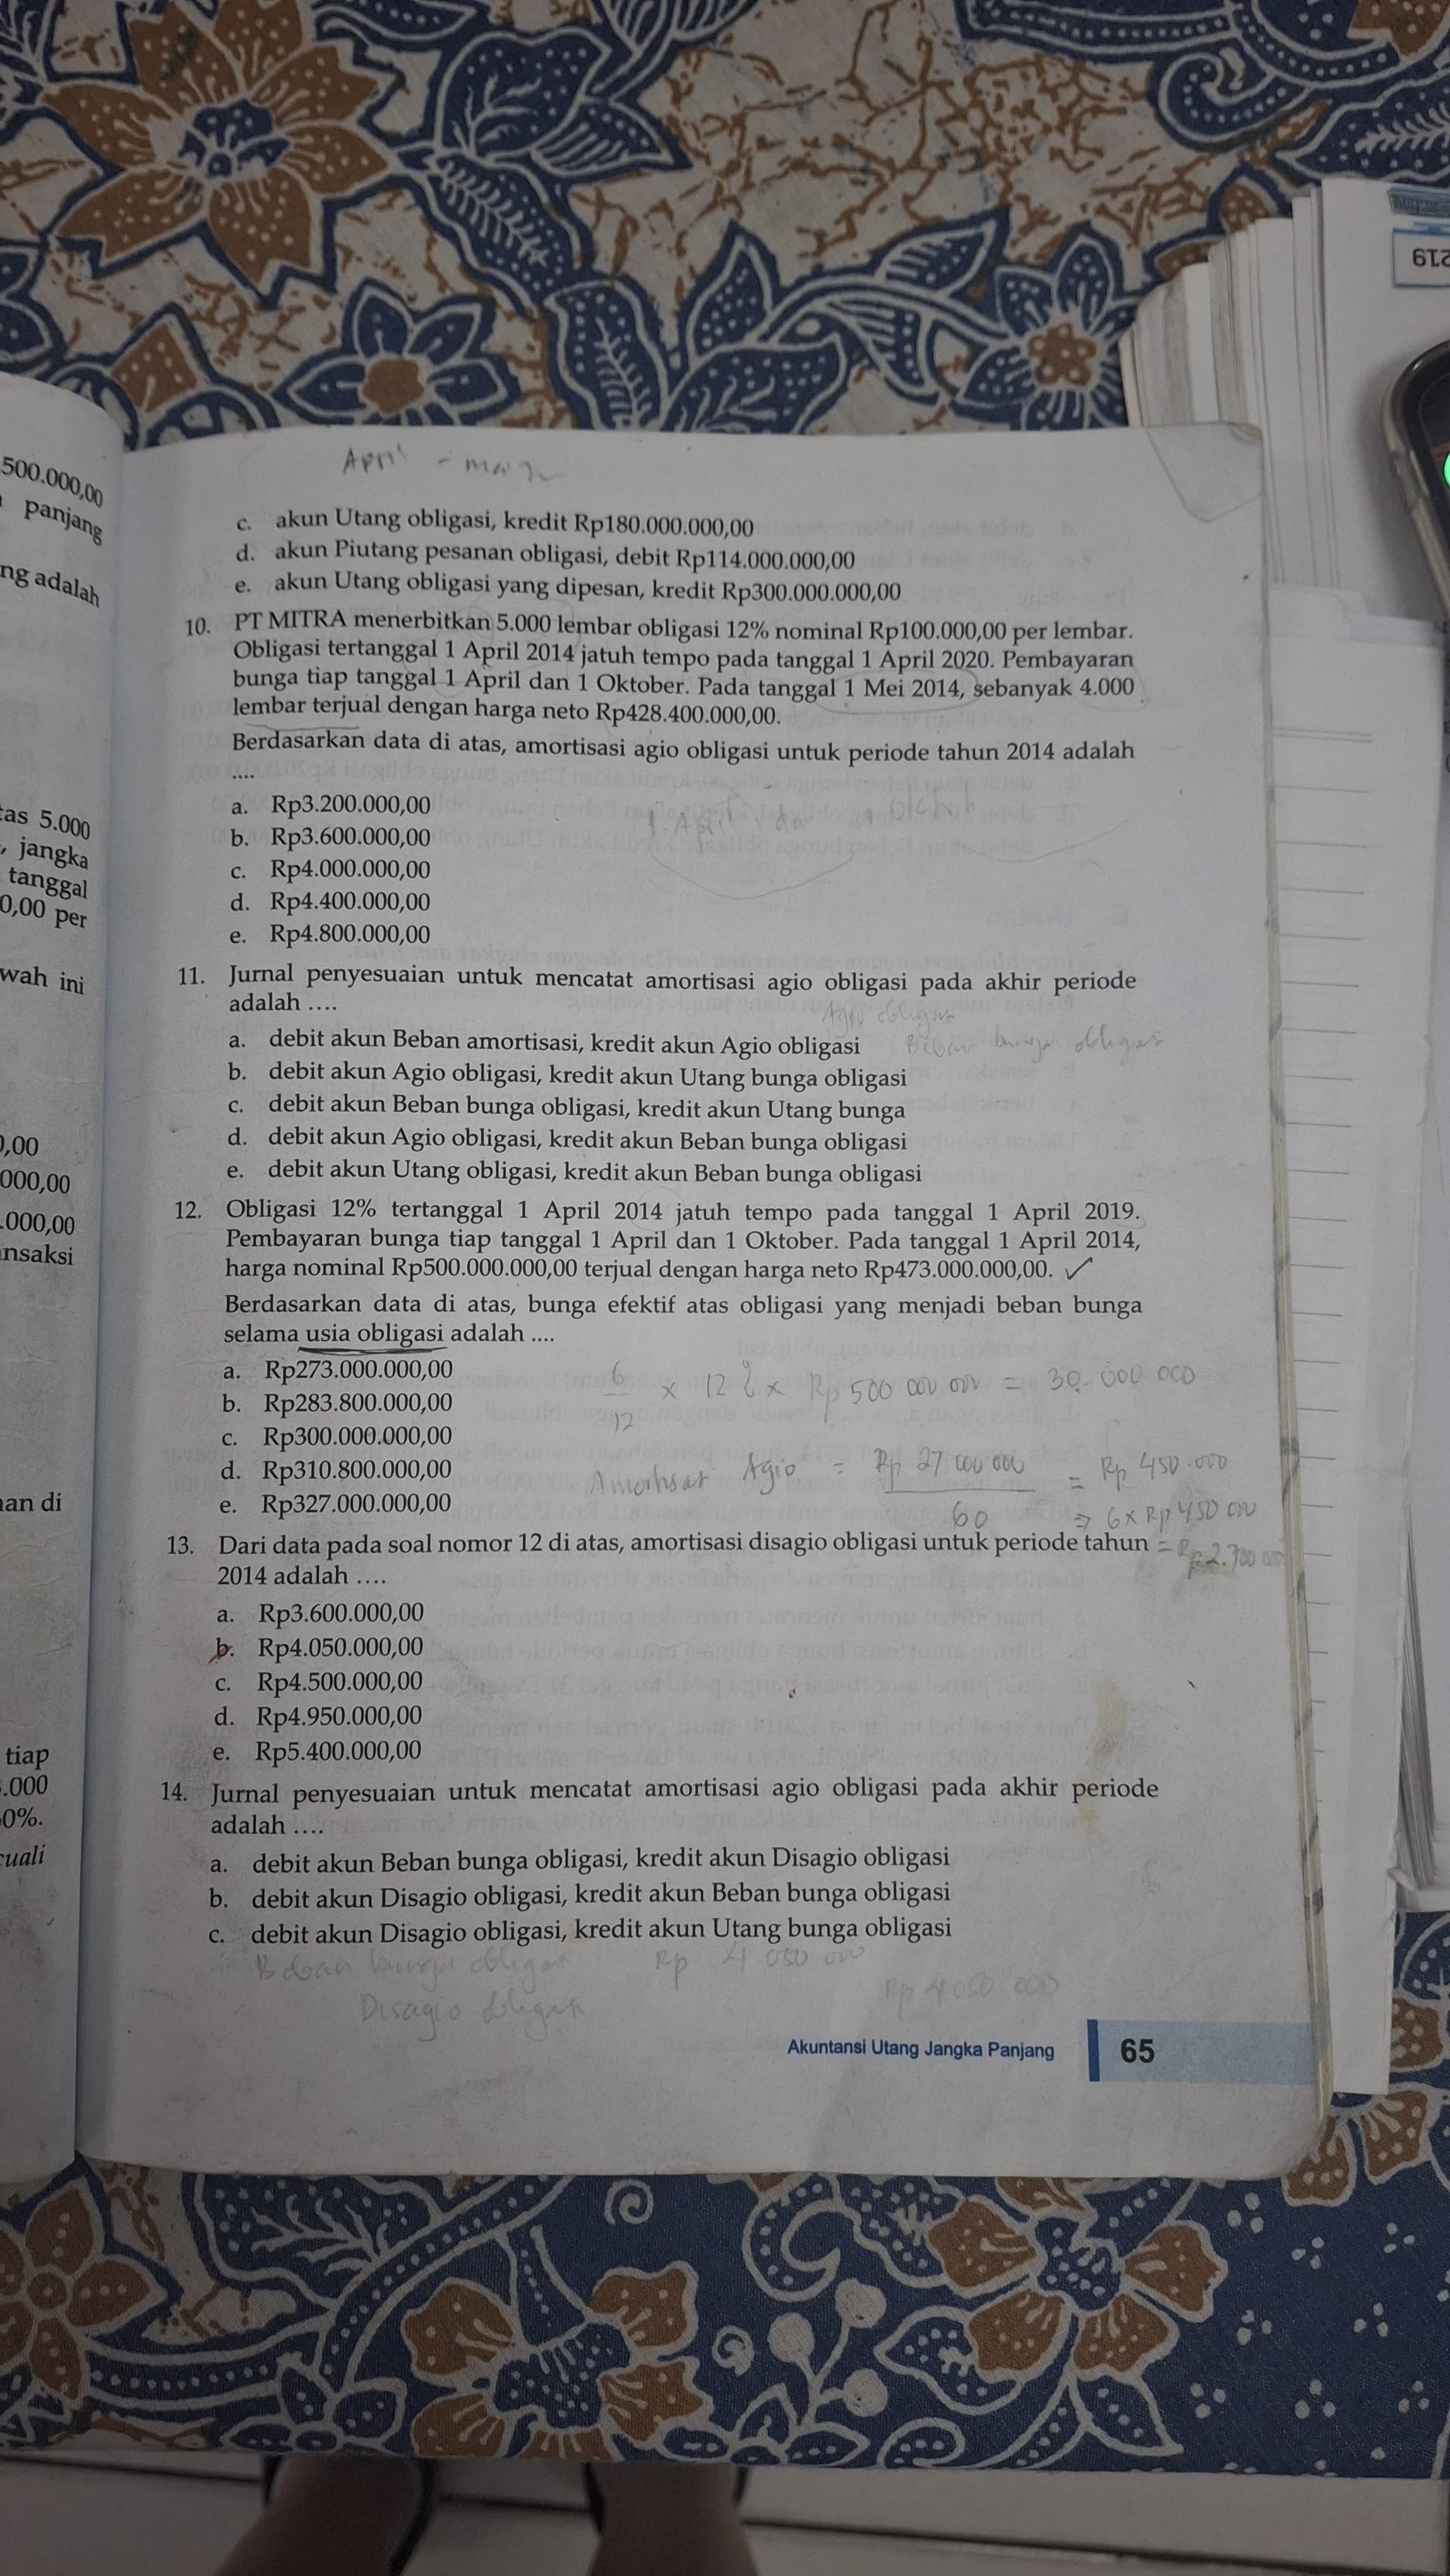 500.000,00
panjang
ng adalah
as 5.000
, jangka
tanggal
0,00 per
wah ini
0,00
000,00
.000,00
nsaksi
an di
tiap
.000
0%.
cuali
219
April -
c. akun Utang obligasi, kredit Rp180.000.000,00
d. akun Piutang pesanan obligasi, debit Rp114.000.000,00
e. akun Utang obligasi yang dipesan, kredit Rp300.000.000,00
10. PT MITRA menerbitkan 5.000 lembar obligasi 12% nominal Rp100.000,00 per lembar.
Obligasi tertanggal 1 April 2014 jatuh tempo pada tanggal 1 April 2020. Pembayaran
bunga tiap tanggal 1 April dan 1 Oktober. Pada tanggal 1 Mei 2014, sebanyak 4.000
lembar terjual dengan harga neto Rp428.400.000,00.
Berdasarkan data di atas, amortisasi agio obligasi untuk periode tahun 2014 adalah
....
a. Rp3.200.000,00
1 April da
b. Rp3.600.000,00
c. Rp4.000.000,00
d. Rp4.400.000,00
e. Rp4.800.000,00
11. Jurnal penyesuaian untuk mencatat amortisasi agio obligasi pada akhir periode
adalah ....
Agio obligasi
a. debit akun Beban amortisasi, kredit akun Agio obligasi
Beban bunga obligasi
b. debit akun Agio obligasi, kredit akun Utang bunga obligasi
c. debit akun Beban bunga obligasi, kredit akun Utang bunga
d. debit akun Agio obligasi, kredit akun Beban bunga obligasi
e. debit akun Utang obligasi, kredit akun Beban bunga obligasi
12. Obligasi 12% tertanggal 1 April 2014 jatuh tempo pada tanggal 1 April 2019.
Pembayaran bunga tiap tanggal 1 April dan 1 Oktober. Pada tanggal 1 April 2014,
harga nominal Rp500.000.000,00 terjual dengan harga neto Rp473.000.000,00. ✓
Berdasarkan data di atas, bunga efektif atas obligasi yang menjadi beban bunga
selama usia obligasi adalah ....
a. Rp273.000.000,00
6/12 x 12 % x Rp 500 000 000 = 30.000 000
b. Rp283.800.000,00
c. Rp300.000.000,00
d. Rp310.800.000,00
Amortisasi Agio = Rp 27 000 000 / 60 = Rp 450.000
e. Rp327.000.000,00
⇒ 6 x Rp 450 000
= Rp 2.700 000
13. Dari data pada soal nomor 12 di atas, amortisasi disagio obligasi untuk periode tahun
2014 adalah ....
a. Rp3.600.000,00
b. Rp4.050.000,00
c. Rp4.500.000,00
d. Rp4.950.000,00
e. Rp5.400.000,00
14. Jurnal penyesuaian untuk mencatat amortisasi agio obligasi pada akhir periode
adalah ....
a. debit akun Beban bunga obligasi, kredit akun Disagio obligasi
b. debit akun Disagio obligasi, kredit akun Beban bunga obligasi
c. debit akun Disagio obligasi, kredit akun Utang bunga obligasi
Beban bunga obligasi Rp 4 050 000
Disagio obligasi Rp 4 050 000
Akuntansi Utang Jangka Panjang 65